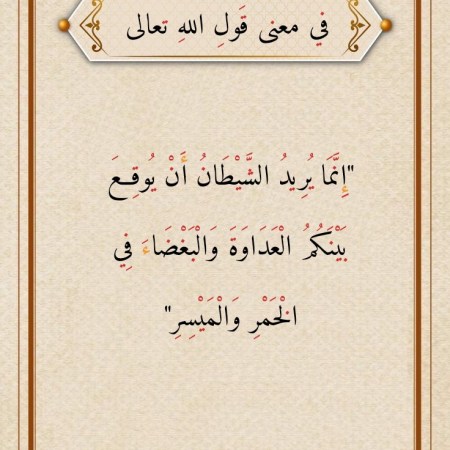 في معنى قَولِ اللهِ تعالى
"إِنَّمَا يُرِيدُ الشَّيْطَانُ أَنْ يُوقِعَ
بَيْنَكُمُ الْعَدَاوَةَ وَالْبَغْضَاءَ فِي
الْخَمْرِ وَالْمَيْسِرِ"